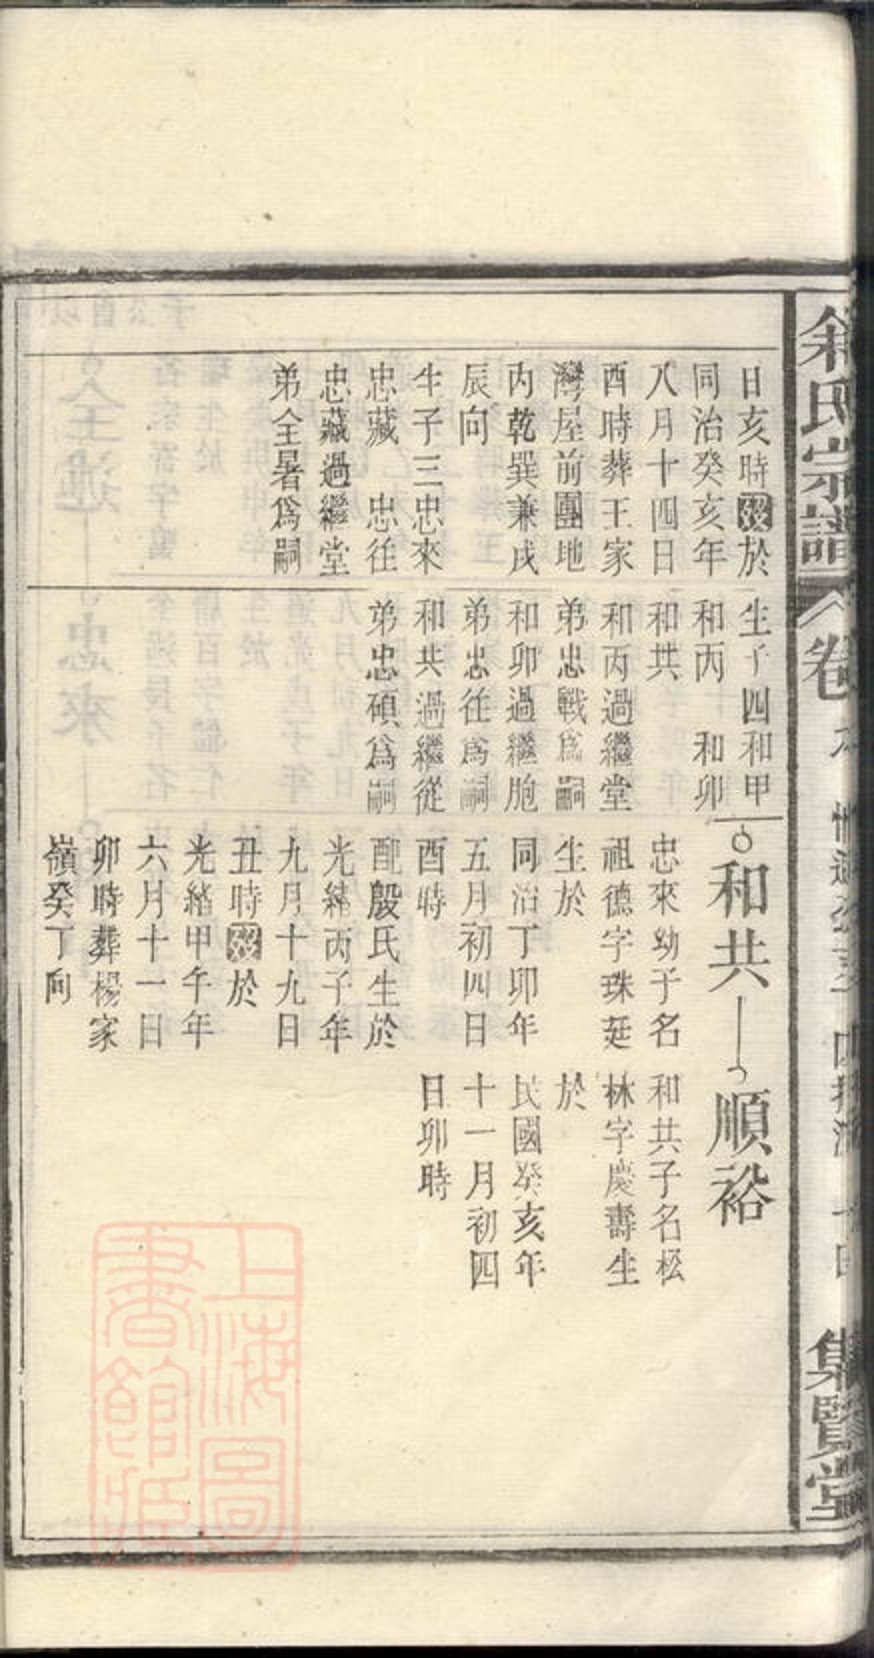 余氏宗譜
卷
集賢堂
日亥時殁於
同治癸亥年
八月十四日
酉時葬王家
灣屋前團地
内乾巽兼戌
辰向
生子三忠來
忠藏　忠往
忠藏過繼堂
弟全暑爲嗣
生子四和甲
和丙　和卯
和共
和丙過繼堂
弟忠戰爲嗣
和卯過繼胞
弟忠往爲嗣
和共過繼從
弟忠碩爲嗣
和共
忠來幼子名
祖德字珠莛
生於
同治丁卯年
五月初四日
酉時
配殷氏生於
光緒丙子年
九月十九日
丑時殁於
光緒甲午年
六月十一日
卯時葬楊家
嶺癸丁向
順裕
和共子名松
林字慶壽生
於
民國癸亥年
十一月初四
日卯時
上海圖
書館藏